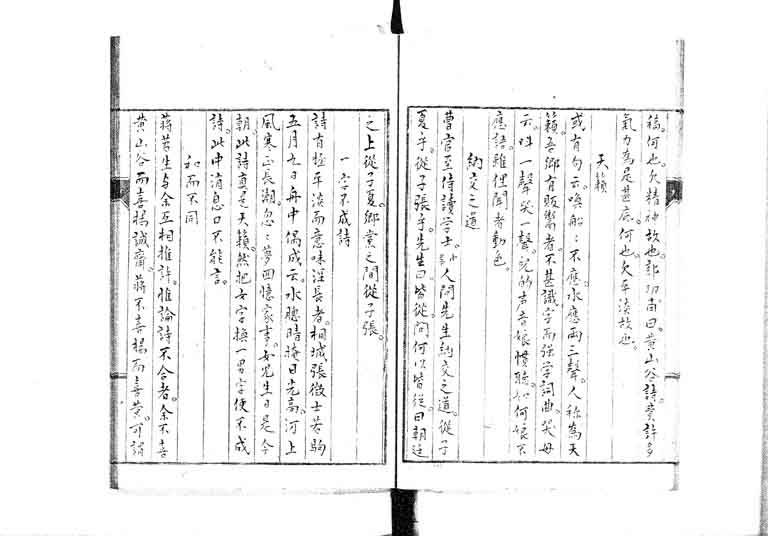 稿。何也。欠精神故也。郭功甫曰。黃山谷詩。費許多
氣力為是甚底。何也。欠平淡故也。
天籟
或有句云。喚船船不應。水應兩三聲。人稱為天
籟。吾鄉有販鬻者。不甚識字而强學詞曲。哭母
云。叫一聲哭一聲。兒的声音娘慣聽。如何娘不
應。語雖俚。聞者動色。
納交之道
曹官至侍讀学士。人問先生納交之道。從子
夏乎。從子張乎。先生曰。皆從。問何以皆從。曰朝廷
之上從子夏。鄉黨之間從子張。
一字不成詩
詩有極平淡而意味深長者。桐城張徵士若駒
五月九日舟中偶成云。水䆫晴掩日光高。河上
風寒正長潮。忽忽夢回憶家事。女兒生日是今
朝。此詩真是天籟。然把女字換一男字便不成
詩。此中消息口不能言。
和而不同
蔣苕生与余互相推許。惟論詩不合者。余不喜
黃山谷而喜楊誠齋。蔣不喜楊而喜黃。可謂